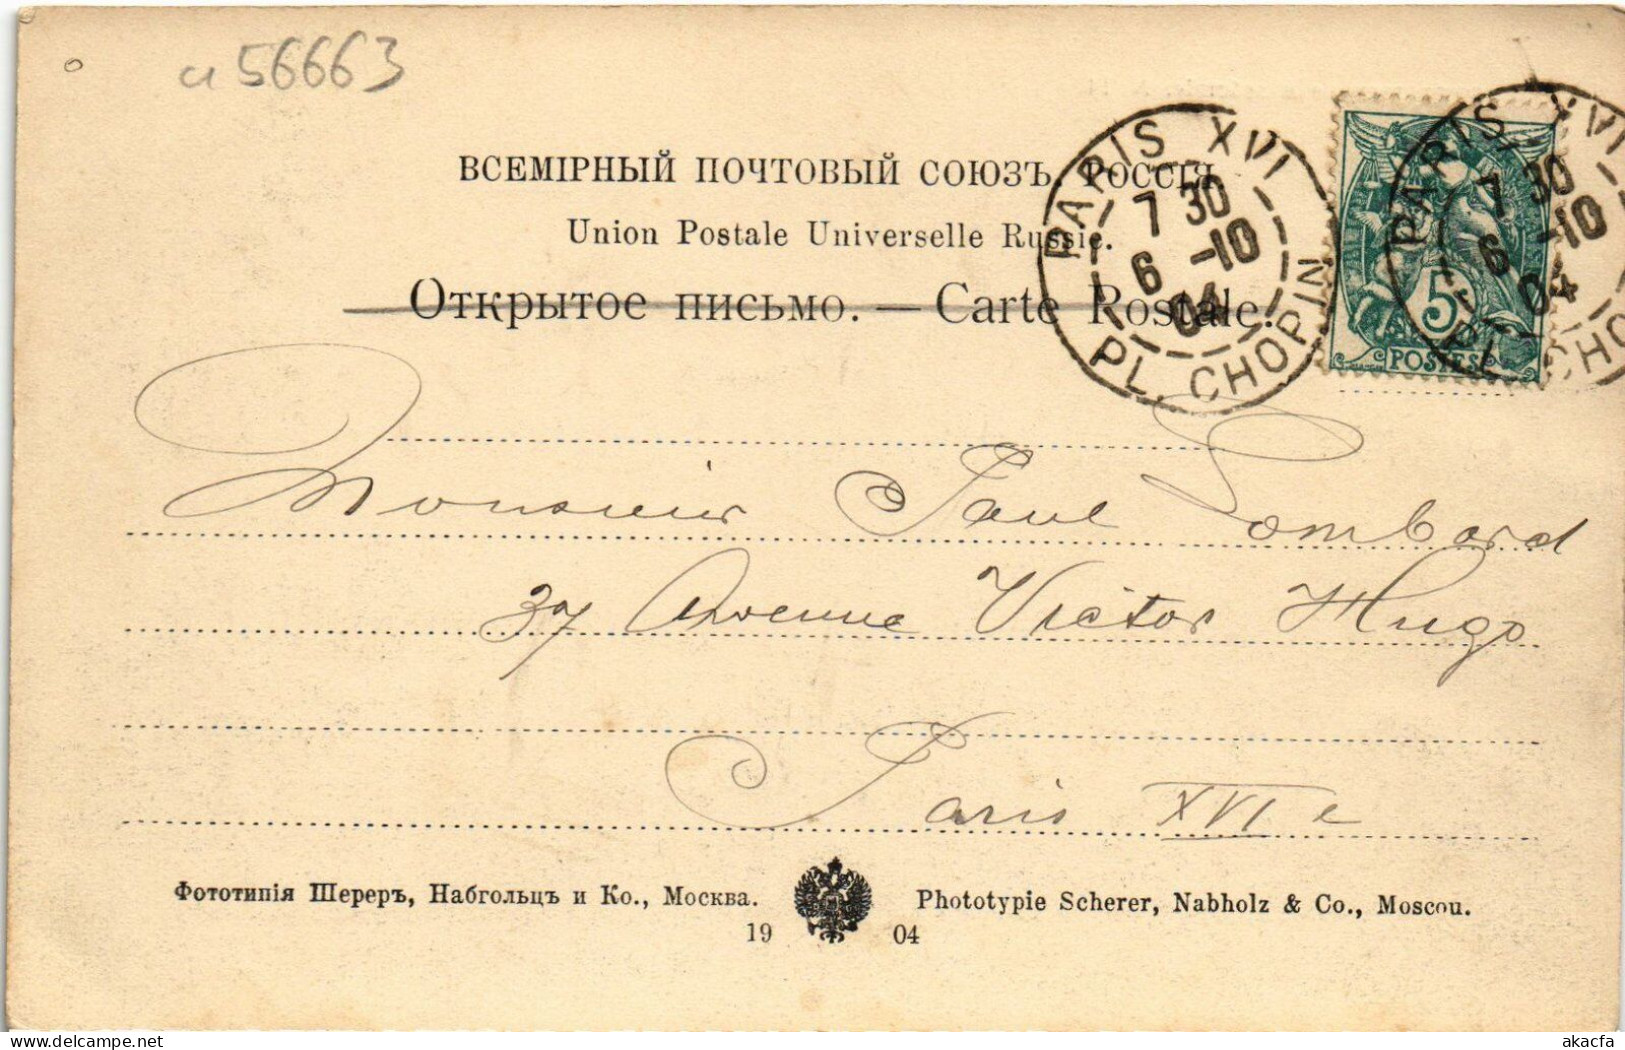 a 56663
ВСЕМІРНЫЙ ПОЧТОВЫЙ СОЮЗЪ. РОССІЯ.
Union Postale Universelle Russie.
Открытое письмо. — Carte Postale.
PARIS XVI
7 30
6 -10
04
PL. CHOPIN
5
POSTES
PARIS XVI
7 30
6 -10
04
PL. CHO
Monsieur Paul Lombard
37 Avenue Victor Hugo
Paris XVI e
Фототипія Шереръ, Набгольцъ и Ко., Москва.
Phototypie Scherer, Nabholz & Co., Moscou.
19 04
akacfa
delcampe.net